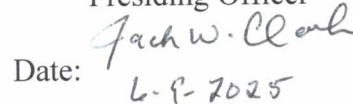 Presiding Officer
Jack W. Clark
Date:
6-9-2025